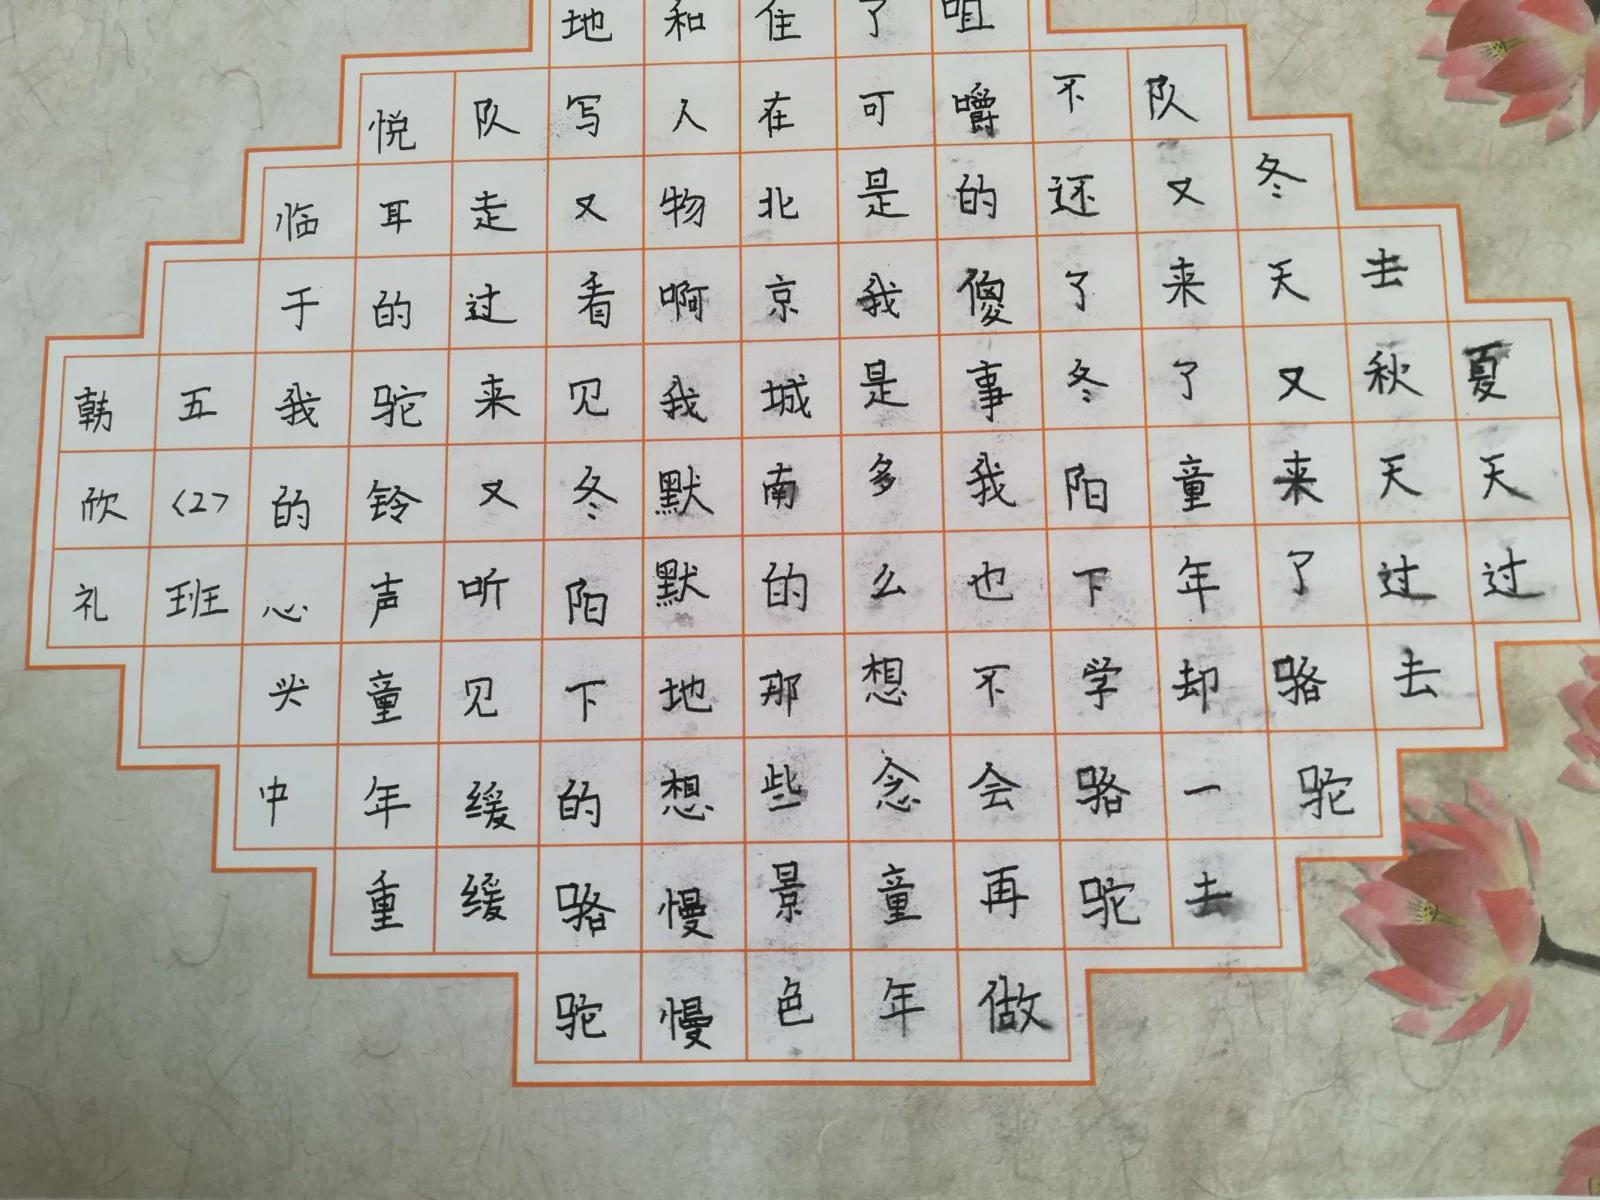 夏天过
去秋天过去
冬天又来了骆驼
队又来了童年却一去
不还了冬阳下学骆驼
咀嚼的傻事我也不会再做
了可是我是多么想念童年
住在北京城南的那些景色
和人物啊我默默地想慢慢
地写又看见冬阳下的骆驼
队走过来又听见缓缓
悦耳的驼铃声童年重
临于我的心头中
五〈2〉班
韩欣礼